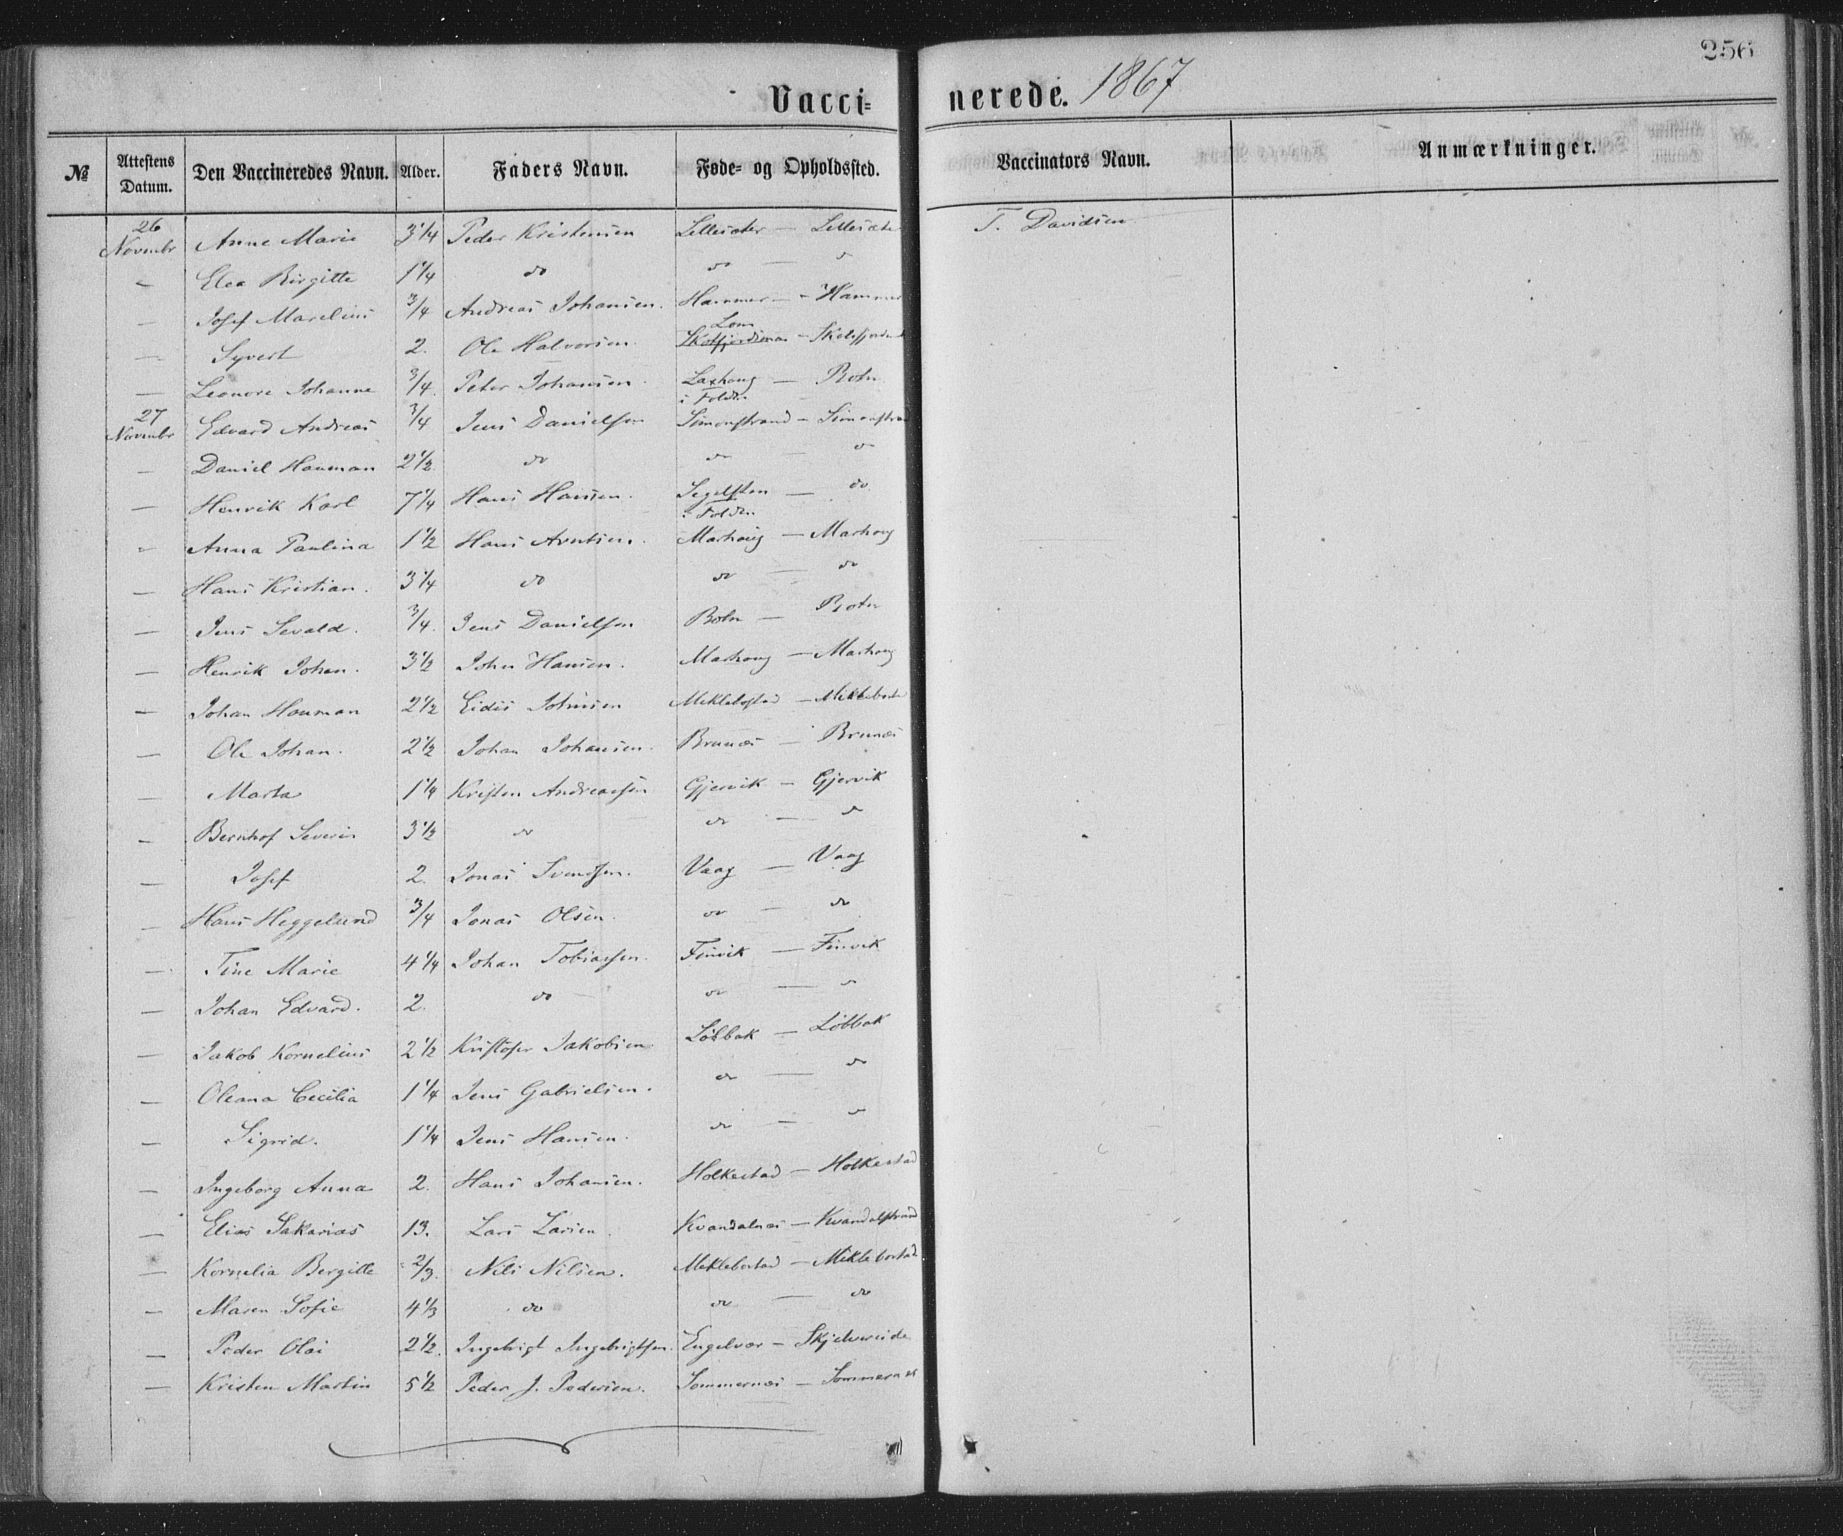 256
Vacci= nerede. 1867
№ Attestens Datum. Den Vaccineredes Navn. Alder. Faders Navn. Føde- og Opholdssted. Vaccinators Navn. Anmærkninger.
26 Novembr Anne Marie 3 1/4 Peder Kristensen Lillesæter — Lillesæte T. Davidsen
— Elea Birgitte 1 1/4 do do — do
— Josef Marelius 3/4 Andreas Johansen. Hammer — Hammer
— Syvert 2. Ole Halvorsen Lom
— Leonore Johanne 3/4 Peter Johansen. Laxhaug i Folden — Botn
27 Novembr Edvard Andreas 3/4 Jens Danielsen Simonstrand — Simonstrand
— Daniel Houman 2 1/2 do do — do
— Henrik Karl 7 1/4 Hans Hansen. Segelsten i Folden — do
— Anna Paulina 1 1/2 Hans Arntsen. Marhoug — Marhoug
— Hans Kristian. 3 1/4 do do — do
— Jens Sevald. 3/4. Jens Danielsen Botn — Botn
— Henrik Johan. 3 1/2 John Hansen. Marhoug — Marhoug
— Johan Houman 2 1/2 Eidis Johnsen Meklebostad — Meklebosta
— Ole Johan. 2 1/2 Johan Johansen. Brunæs — Brunæs
— Marta 1 1/4 Kristen Andreassen Gjervik — Gjervik
— Bernhof Severin 3 1/2 do do — do
— Josef 2. Jonas Svendsen. Vaag — Vaag
— Hans Heggelund 3/4 Jonas Olsen. do — do
— Tine Marie 4 1/4 Johan Tobiassen. Finvik — Finvik
— Johan Edvard. 2. do do — do
— Jakob Kornelius 2 1/2 Kristofer Jakobsen. Løbbak — Løbbak
— Oleana Cecilia 1 1/4 Jens Gabrielsen. do — do
— Sigrid. 1 1/4 Jens Hansen. do — do
— Ingeborg Anna 2. Hans Johansen. Holkestad — Holkestad
— Elias Sakarias 13. Lars Larsen. Kvandalnæs — Kvandalstrand
— Kornelia Bergitte 2/3. Nils Nilsen. Meklebostad — Miklebostad
— Maren Sofie 4 1/3 do do — do
— Peder Olai 2 1/2. Ingebrigt Ingebrigtsen. Engelvær — Skjelvereide
— Kristen Martin 5 1/2 Peder J. Pedersen. Sommernæs — Sommernæs